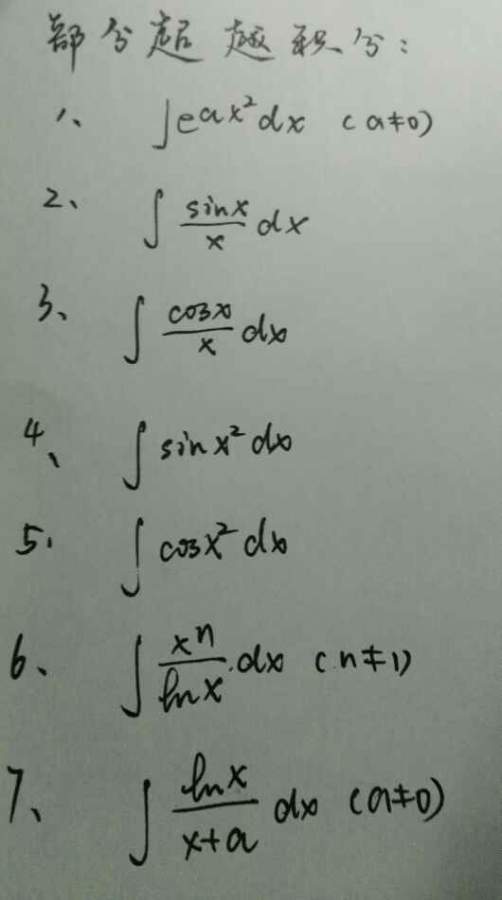 部分超越积分：
1、 ∫e^{ax²}dx (a≠0)
2、 ∫ sinx/x dx
3、 ∫ cosx/x dx
4、 ∫ sinx² dx
5、 ∫ cosx² dx
6、 ∫ xⁿ/lnx dx (n≠1)
7、 ∫ lnx/(x+a) dx (a≠0)